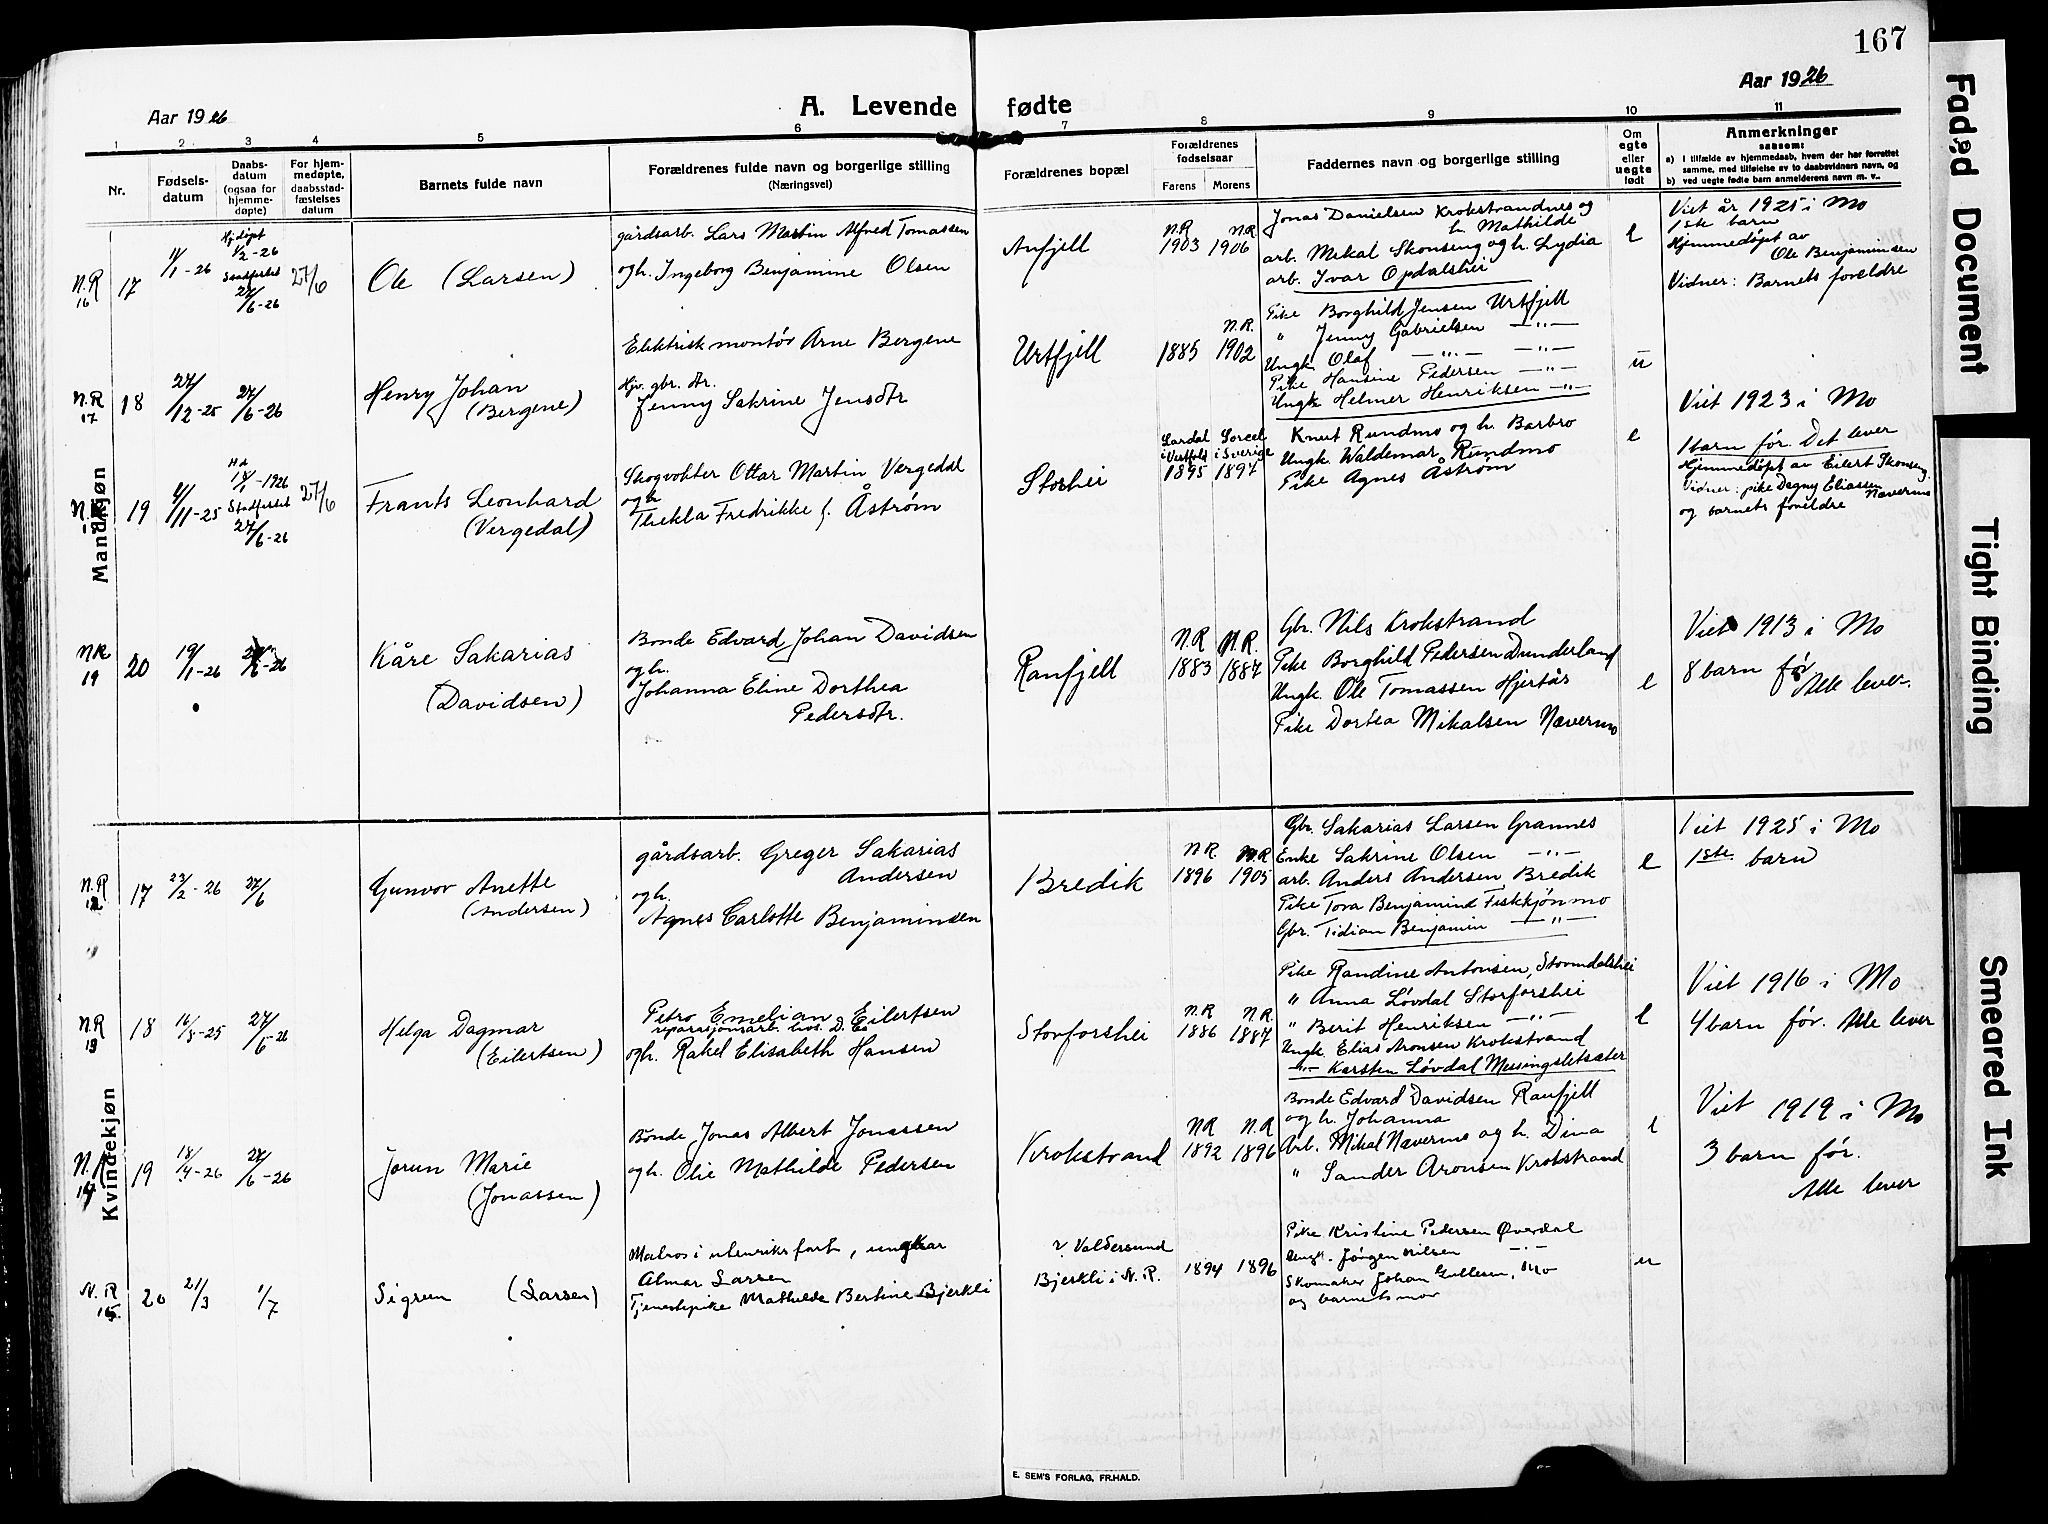 167
Aar 1926
A. Levende fødte
Aar 1926
1 2 3 4 5 6 7 8 9 10 11
Nr.
Fødsels-
datum
Daabs-
datum
(ogsaa for
hjemme-
døpte)
For hjem-
medøpte,
daabsstad-
fæstelses
datum
Barnets fulde navn
Forældrenes fulde navn og borgerlige stilling
(Næringsvei)
Forældrenes bopæl
Forældrenes
fødselsaar
Farens Morens
Faddernes navn og borgerlige stilling
Om
egte
eller
uegte
født
Anmerkninger
saasom:
a) I tilfælde av hjemmedaab, hvem der har forrettet
samme, med tilføielse av to daabsvidners navn, og
b) ved uegte fødte barn anmelderens navn m. v..
Mandkjøn
N.R
16
17
11/1-26
Hj.døpt
1/2-26
Stadfestet
27/6-26
27/6
Ole (Larsen)
gårdsarb. Lars Martin Alfred Tomassen
og h. Ingeborg Benjamine Olsen
Anfjell
N.R N.R
1903 1906
Jonas Danielsen Krokstrandnes og
h. Mathilde
arb. Mikal Skonseng og h. Lydia
arb. Ivar Opdalshei
e
Viet år 1925 i Mo
1ste barn
Hjemmedøpt av
Ole Benjaminsen
Vidner: Barnets foreldre
N.R
17
18
27/12-25
27/6-26
Henry Johan
(Bergene)
Elektrisk montør Arne Bergene
Hjv. gbr. dr.
Jenny Sakrine Jensdtr
Urtfjell
N.R.
1885 1902
Pike Borghild Jensen Urtfjell
" Jenny Gabrielsen —"—
Ungk. Olaf —"— —"—
Pike Hansine Pedersen —"—
Ungk Helmer Henriksen —"—
u
N.R
19
11-25
-1926
Stadfestet
27/6-26
27/6
Frants Leonhard
(Vergedal)
Skogvokter Ottar Martin Vergedal
og h
Thekla Fredrikke f. Åstrøm
Storhei
Lardal
i Vestfold i Sverige
1895 1897
Knut Rundmo og h. Barbro
Ungk. Waldemar Rundmo
Pike Agnes Åstrøm
e
Viet 1923 i Mo
1 barn før. Det lever
Hjemmedøpt av Eilert Skonseng
Vidner: pike Dagny Eliassen
Nævermo
og barnets foreldre
N.R
19
20
19/1-26
27/6-26
Kåre Sakarias
(Davidsen)
Bonde Edvard Johan Davidsen
og h.
Johanna Eline Dorthea
Pedersdtr.
Ranfjell
N.R N.R.
1883 1887
Gbr. Nils Krokstrand
Pike Borghild Pedersen Dunderland
Ungk. Ole Tomassen Hjertås
Pike Dortea Mikalsen Nævermo
e
Viet 1913 i Mo
8 barn før
Alle lever.
Kvindekjøn
N.R
12
17
23/2-26
27/6
Gunvor Anette
(Andersen)
gårdsarb. Greger Sakarias
Andersen
og h.
Agnes Carlotte Benjaminsen
Bredik
N.R. N.R
1896 1905
Gbr. Sakarias Larsen Grannes
Enke Sakrine Olsen —"—
arb. Anders Andersen Bredik
Pike Tora Benjamins Fiskkjønmo
Gbr. Tidian Benjamin —"—
e
Viet 1925 i Mo
1ste barn
N.R
13
18
16/5-25
27/6-26
Helga Dagmar
(Eilertsen)
Petro Emelian Eilertsen
reparasjonsarb. hos D. Co
og h. Rakel Elisabeth Hansen
Storforshei
N.R N.R.
1886 1887
Pike Randine Antonsen, Stormdalshei
" Anna Løvdal Storforshei
" Berit Henriksen —"—
Ungk. Elias Aronsen Krokstrand
—"— Karsten Løvdal Messingsletsæter
e
Viet 1916 i Mo
4 barn før. Alle lever
N.R
14
19
18/4-26
27/6-26
Jorun Marie
(Jonassen)
Bonde Jonas Albert Jonassen
og h. Olie Mathilde Pedersen
Krokstrand
N.R N.R
1892 1896
Bonde Edvard Davidsen Ranfjell
og h. Johanna
Arb. Mikal Nævermo og h. Dina
" Sander Aronsen Krokstrand
e
Viet 1919 i Mo
3 barn før.
Alle lever
N.R
15
20
21/3
1/7
Sigrun (Larsen)
Matros i utenriksfart, ungkar
Almar Larsen
Tjenestepike Mathilde Bertine Bjerkli
? Valdersund
Bjerkli i N.R.
1894 1896
Pike Kristine Pedersen Øverdal
Ungk. Jørgen Nilsen —"—
Skomaker Johan Gullesen, Mo
og barnets mor
u
E. SEM'S FORLAG, FR.HALD.
Faded Document
Tight Binding
Smeared Ink